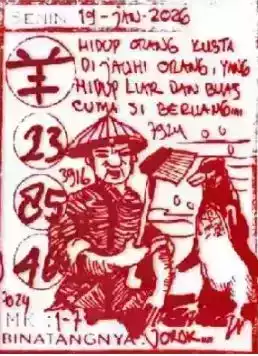 SENIN 19-JAN-2026
HIDUP ORANG KUSTA
DI JAUHI ORANG, YANG
HIDUP LIAR DAN BUAS
CUMA SI BERUANG....
羊
7924
23
3916
85
46
MK : 1-7
BINATANGNYA : JOROK...